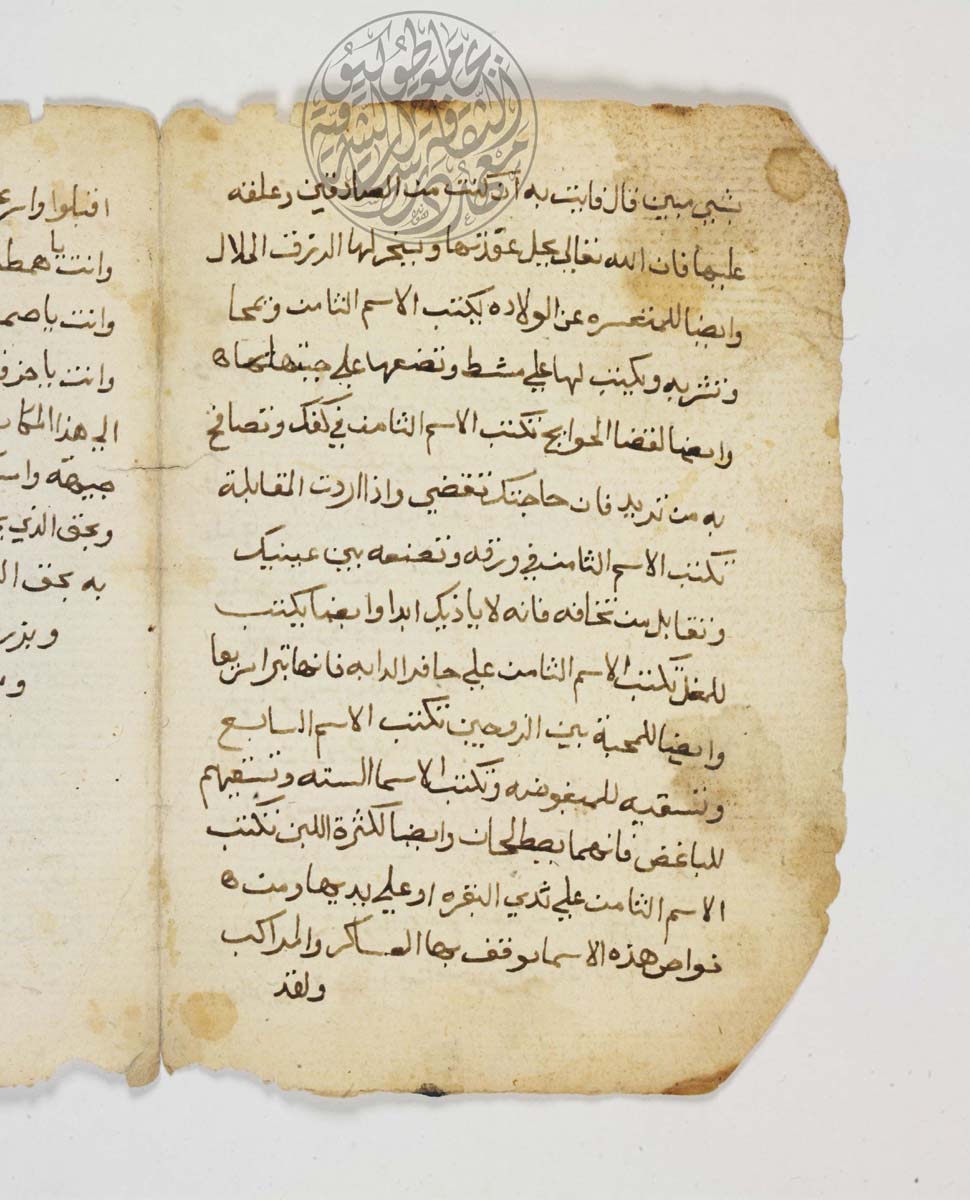 بشي مبين قال فايت به ان كنت من الصادقين وعلقه
عليها فان الله تعالي يحل عقدتها ويسخر لها الرزق الحلال
وايضا للمتعسره عن الولاده يكتب الاسم الثامن ويمحا
وتشربه ويكتب لها علي مشط وتضعها علي جبتها
وايضا لقضا الحوايج تكتب الاسم الثامن في كفك وتصافح
به من تريد فان حاجتك تقضي واذا اردت المقابلة
تكتب الاسم الثامن في ورقه وتضعه بين عينيك
وتقابل من تخافه فانه لا ياذيك ابدا وايضا يكتب
للمغل تكتب الاسم الثامن علي حافر الدابه فانها تبرا سريعا
وايضا للمحبة بين الزوجين تكتب الاسم السابع
وتسقيه للمبغوضه وتكتب الاسما السته وتسقيهم
للباغض فانهما يصطلحان وايضا لكثرة اللبن تكتب
الاسم الثامن علي ثدي البقره او علي يديها ومن
خواص هذه الاسما توقف بها العساكر والمراكب
ولقد
اقبلوا
وانت يا
وانت يا
وانت يا
الي هذا المكان
جبهته
وبحق الذي
به بحق